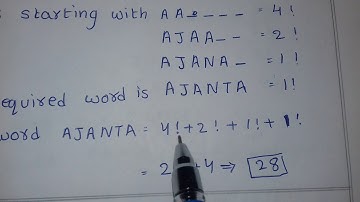 starting with AA---- = 4!
AJAA-- = 2!
AJANA- = 1!
equired word is AJANTA = 1!
word AJANTA = 4! + 2! + 1! + 1!
= 2 4 ⇒ 28